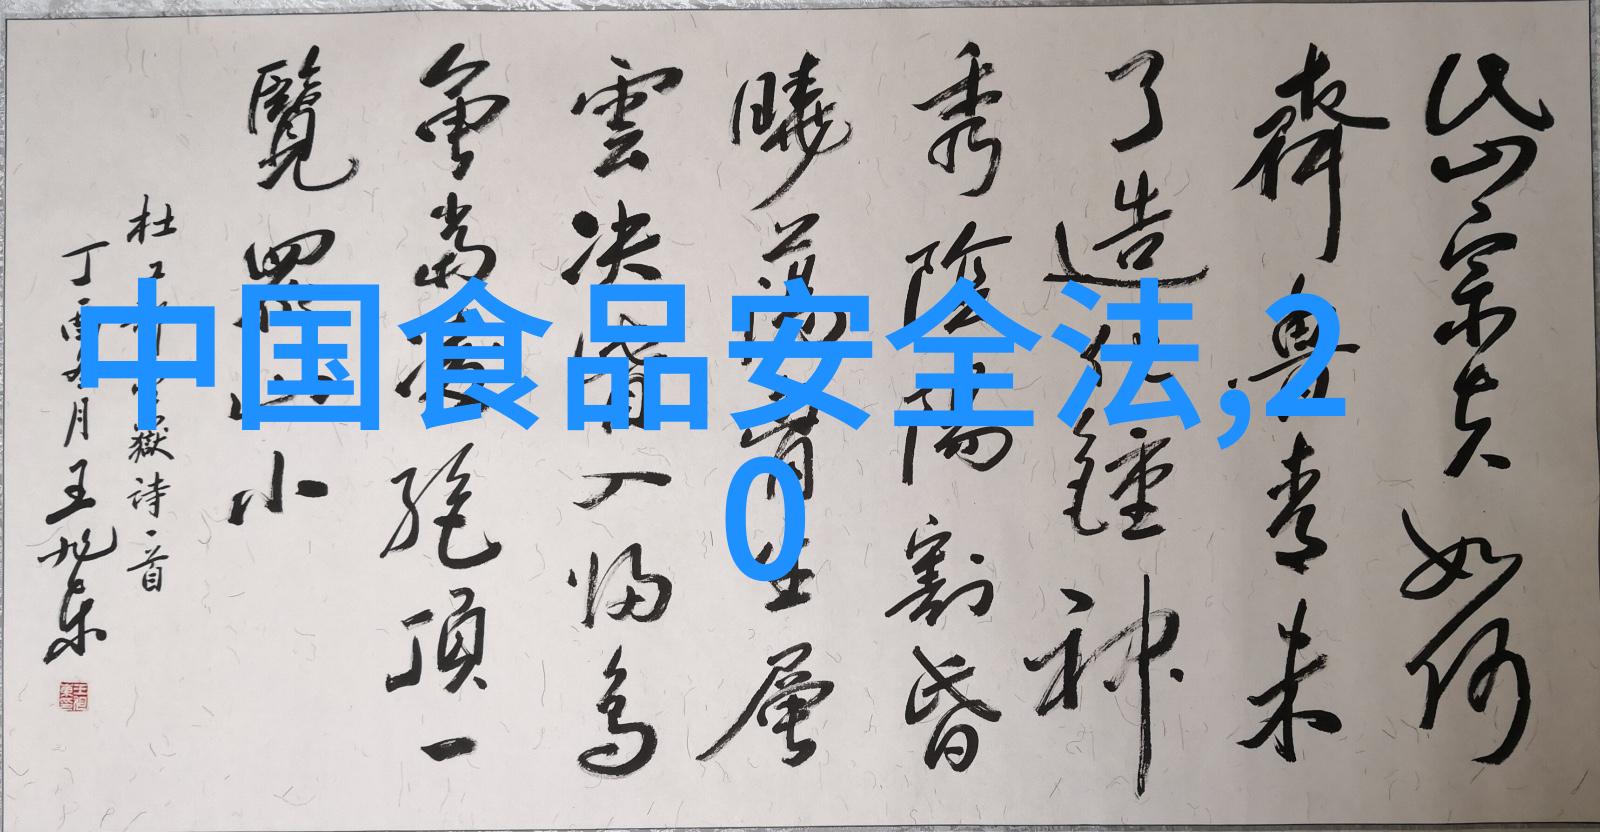 中国食品安全法,2
0
岱宗夫如何
齊魯青未
了造化鍾神
秀陰陽割昏
曉蕩胷生層
雲决眥入歸鳥
會當凌絕頂一
覽眾山小
杜工部望嶽詩一首
丁酉冬月王旭东